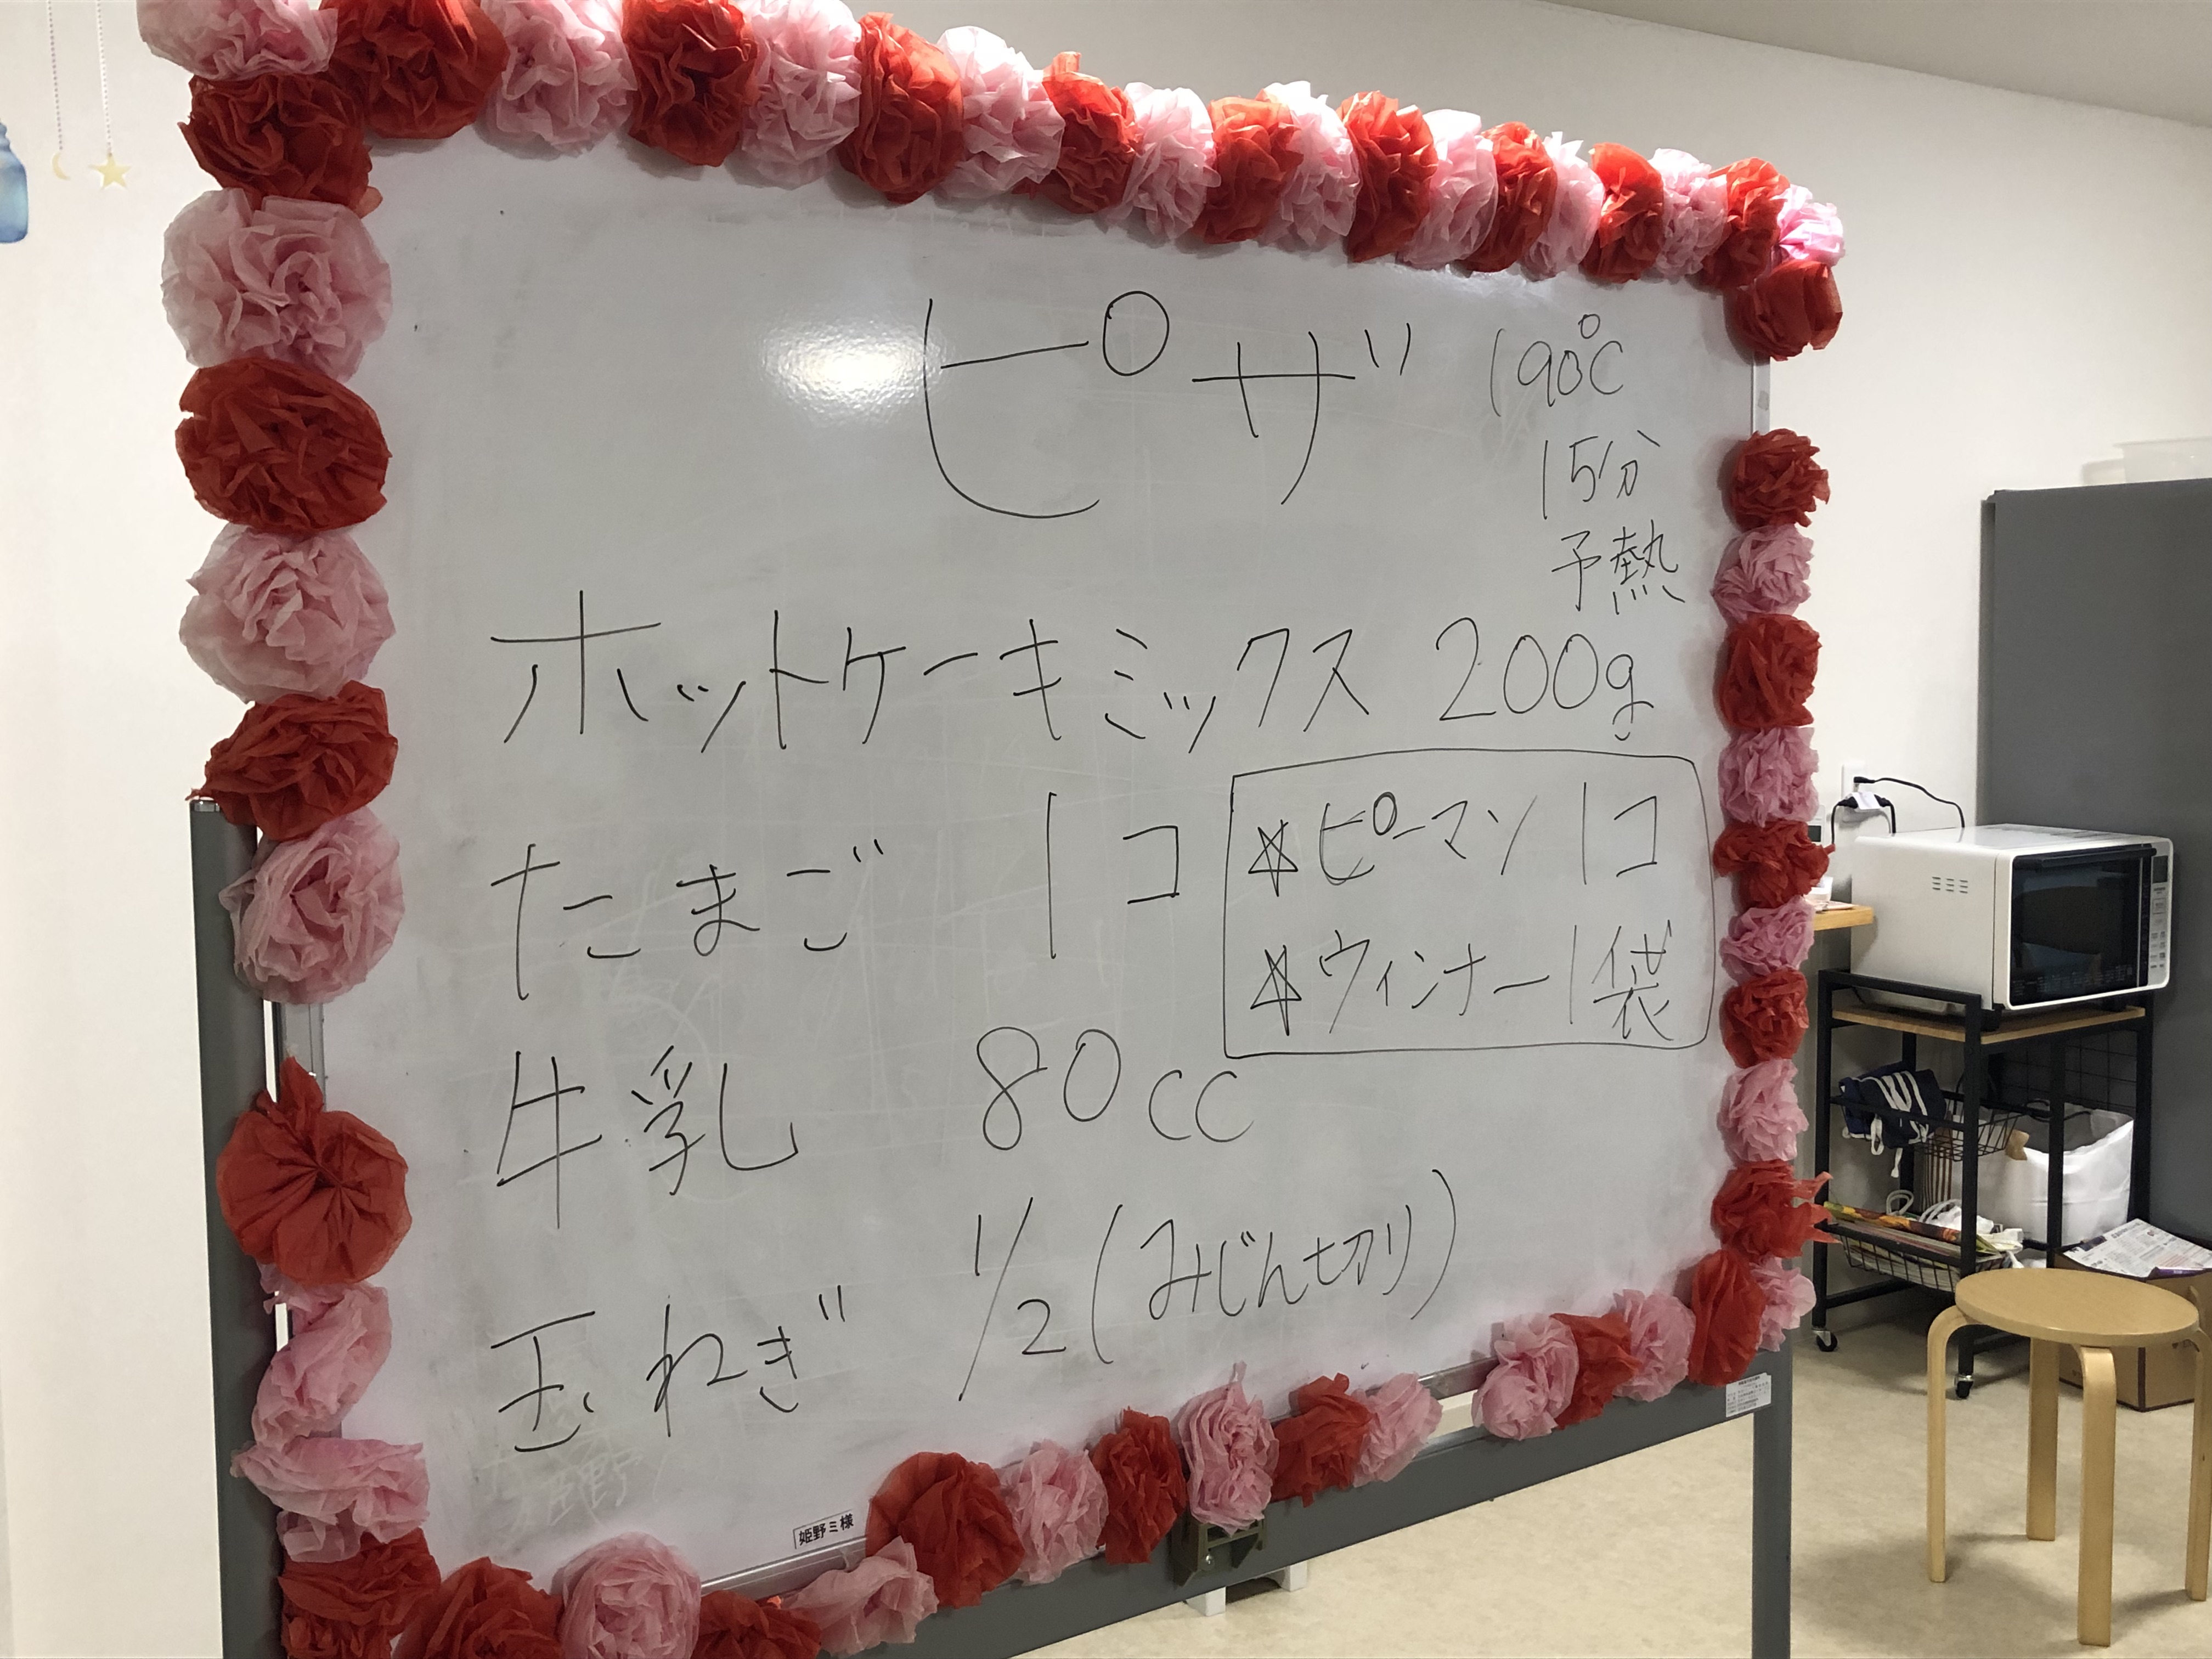 ピザ
190℃
15分
予熱
ホットケーキミックス 200g
たまご 1コ
☆ピーマン 1コ
☆ウィンナー 1袋
牛乳 80cc
玉ねぎ 1/2(みじん切り)
姫野ミ様